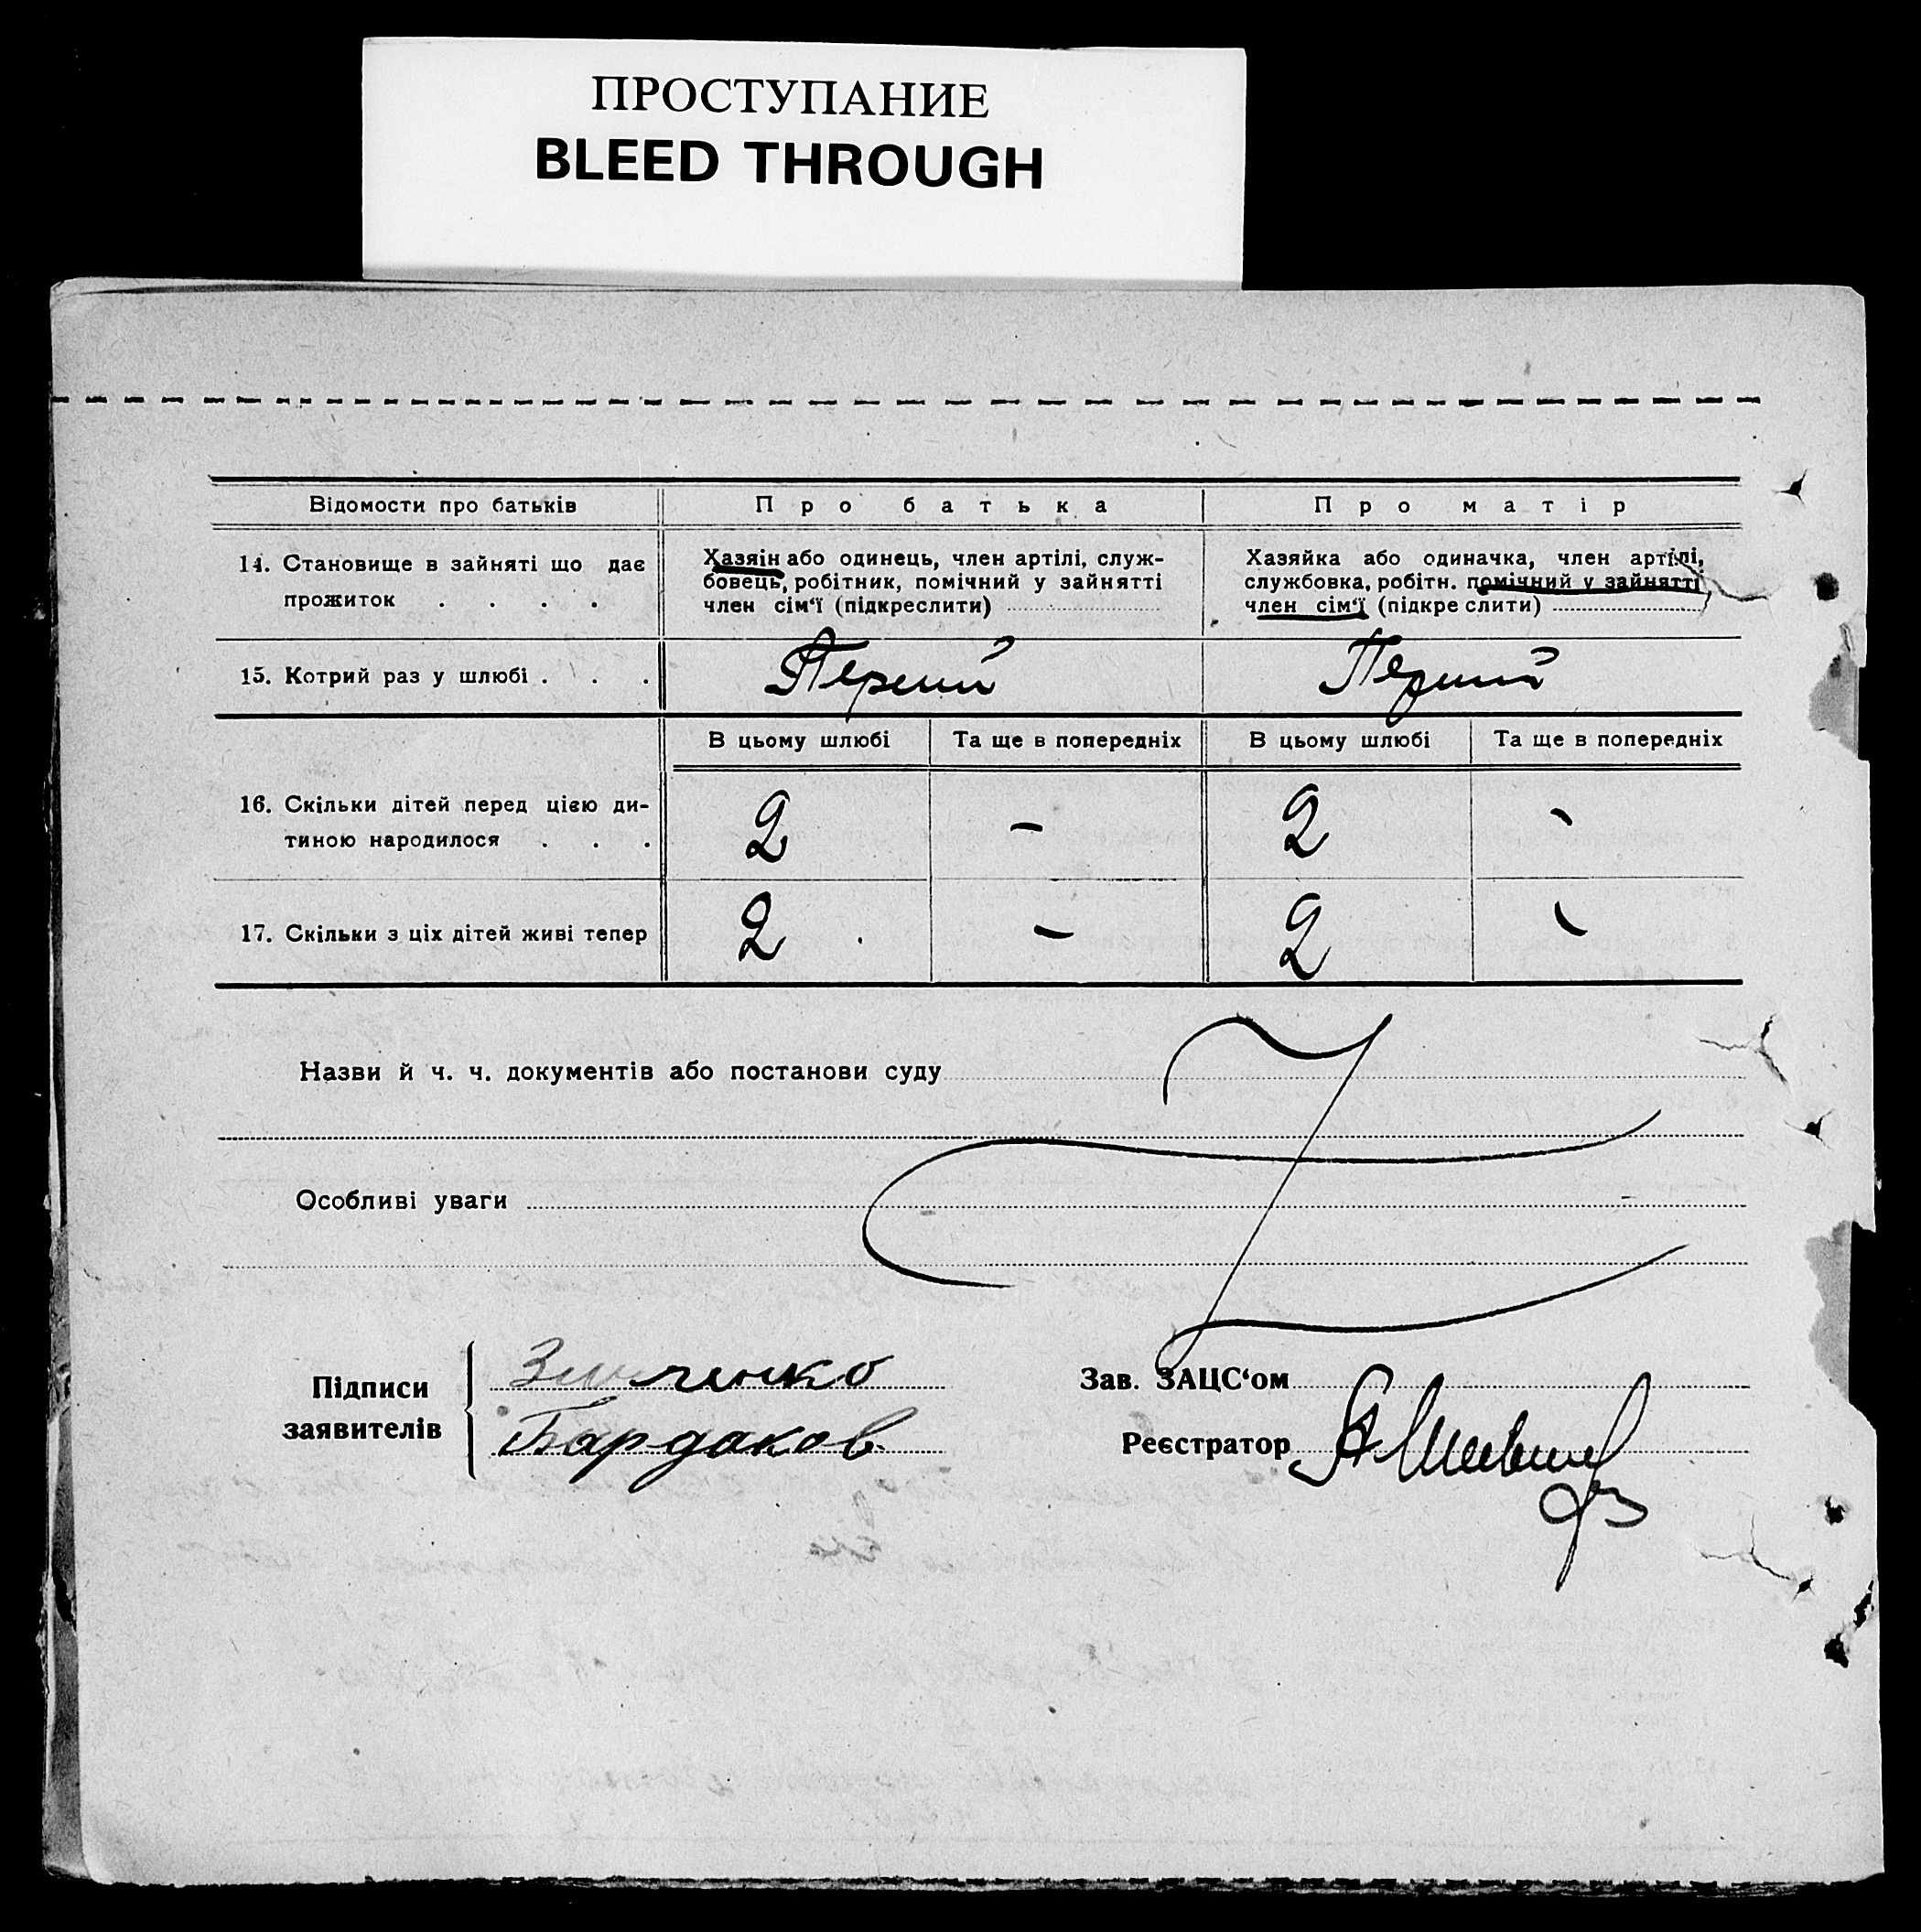 ПРОСТУПАНИЕ
BLEED THROUGH
Відомости про батьків Про батька Про матір
14. Становище в зайняті що дає прожиток . . . .
Хазяін або одинець, член артілі, служ-
бовець, робітник, помічний у зайнятті
член сім'ї (підкреслити)
Хазяйка або одиначка, член артілі,
службовка, робітн. помічний у зайнятті
член сім'ї (підкреслити)
15. Котрий раз у шлюбі . . . Перший Перший
В цьому шлюбі Та ще в попередніх В цьому шлюбі Та ще в попередніх
16. Скільки дітей перед цією ди-
тиною народилося . . . 2 - 2 -
17. Скільки з ціх дітей живі тепер 2 - 2 -
Назви й ч. ч. документів або постанови суду
Особливі уваги
Підписи
заявителів
Зінченко
Бардаков
Зав. ЗАЦС‘ом
Реєстратор